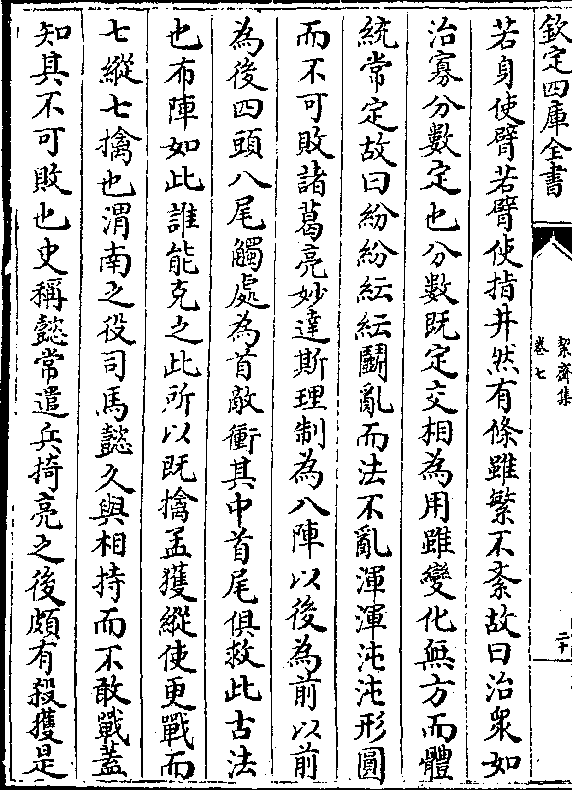 欽定四庫全書
絜齋集
卷七
二十
若身使臂若臂使指井然有條雖繁不紊故曰治衆如
治寡分數定也分數既定交相為用雖變化無方而體
統常定故曰紛紛紜紜鬭亂而法不亂渾渾沌沌形圓
而不可敗諸葛亮妙達斯理制為八陣以後為前以前
為後四頭八尾觸處為首敵衝其中首尾俱救此古法
也布陣如此誰能克之此所以既擒孟獲縱使更戰而
七縱七擒也渭南之役司馬懿久與相持而不敢戰蓋
知其不可敗也史稱懿常遣兵掎亮之後頗有殺獲是